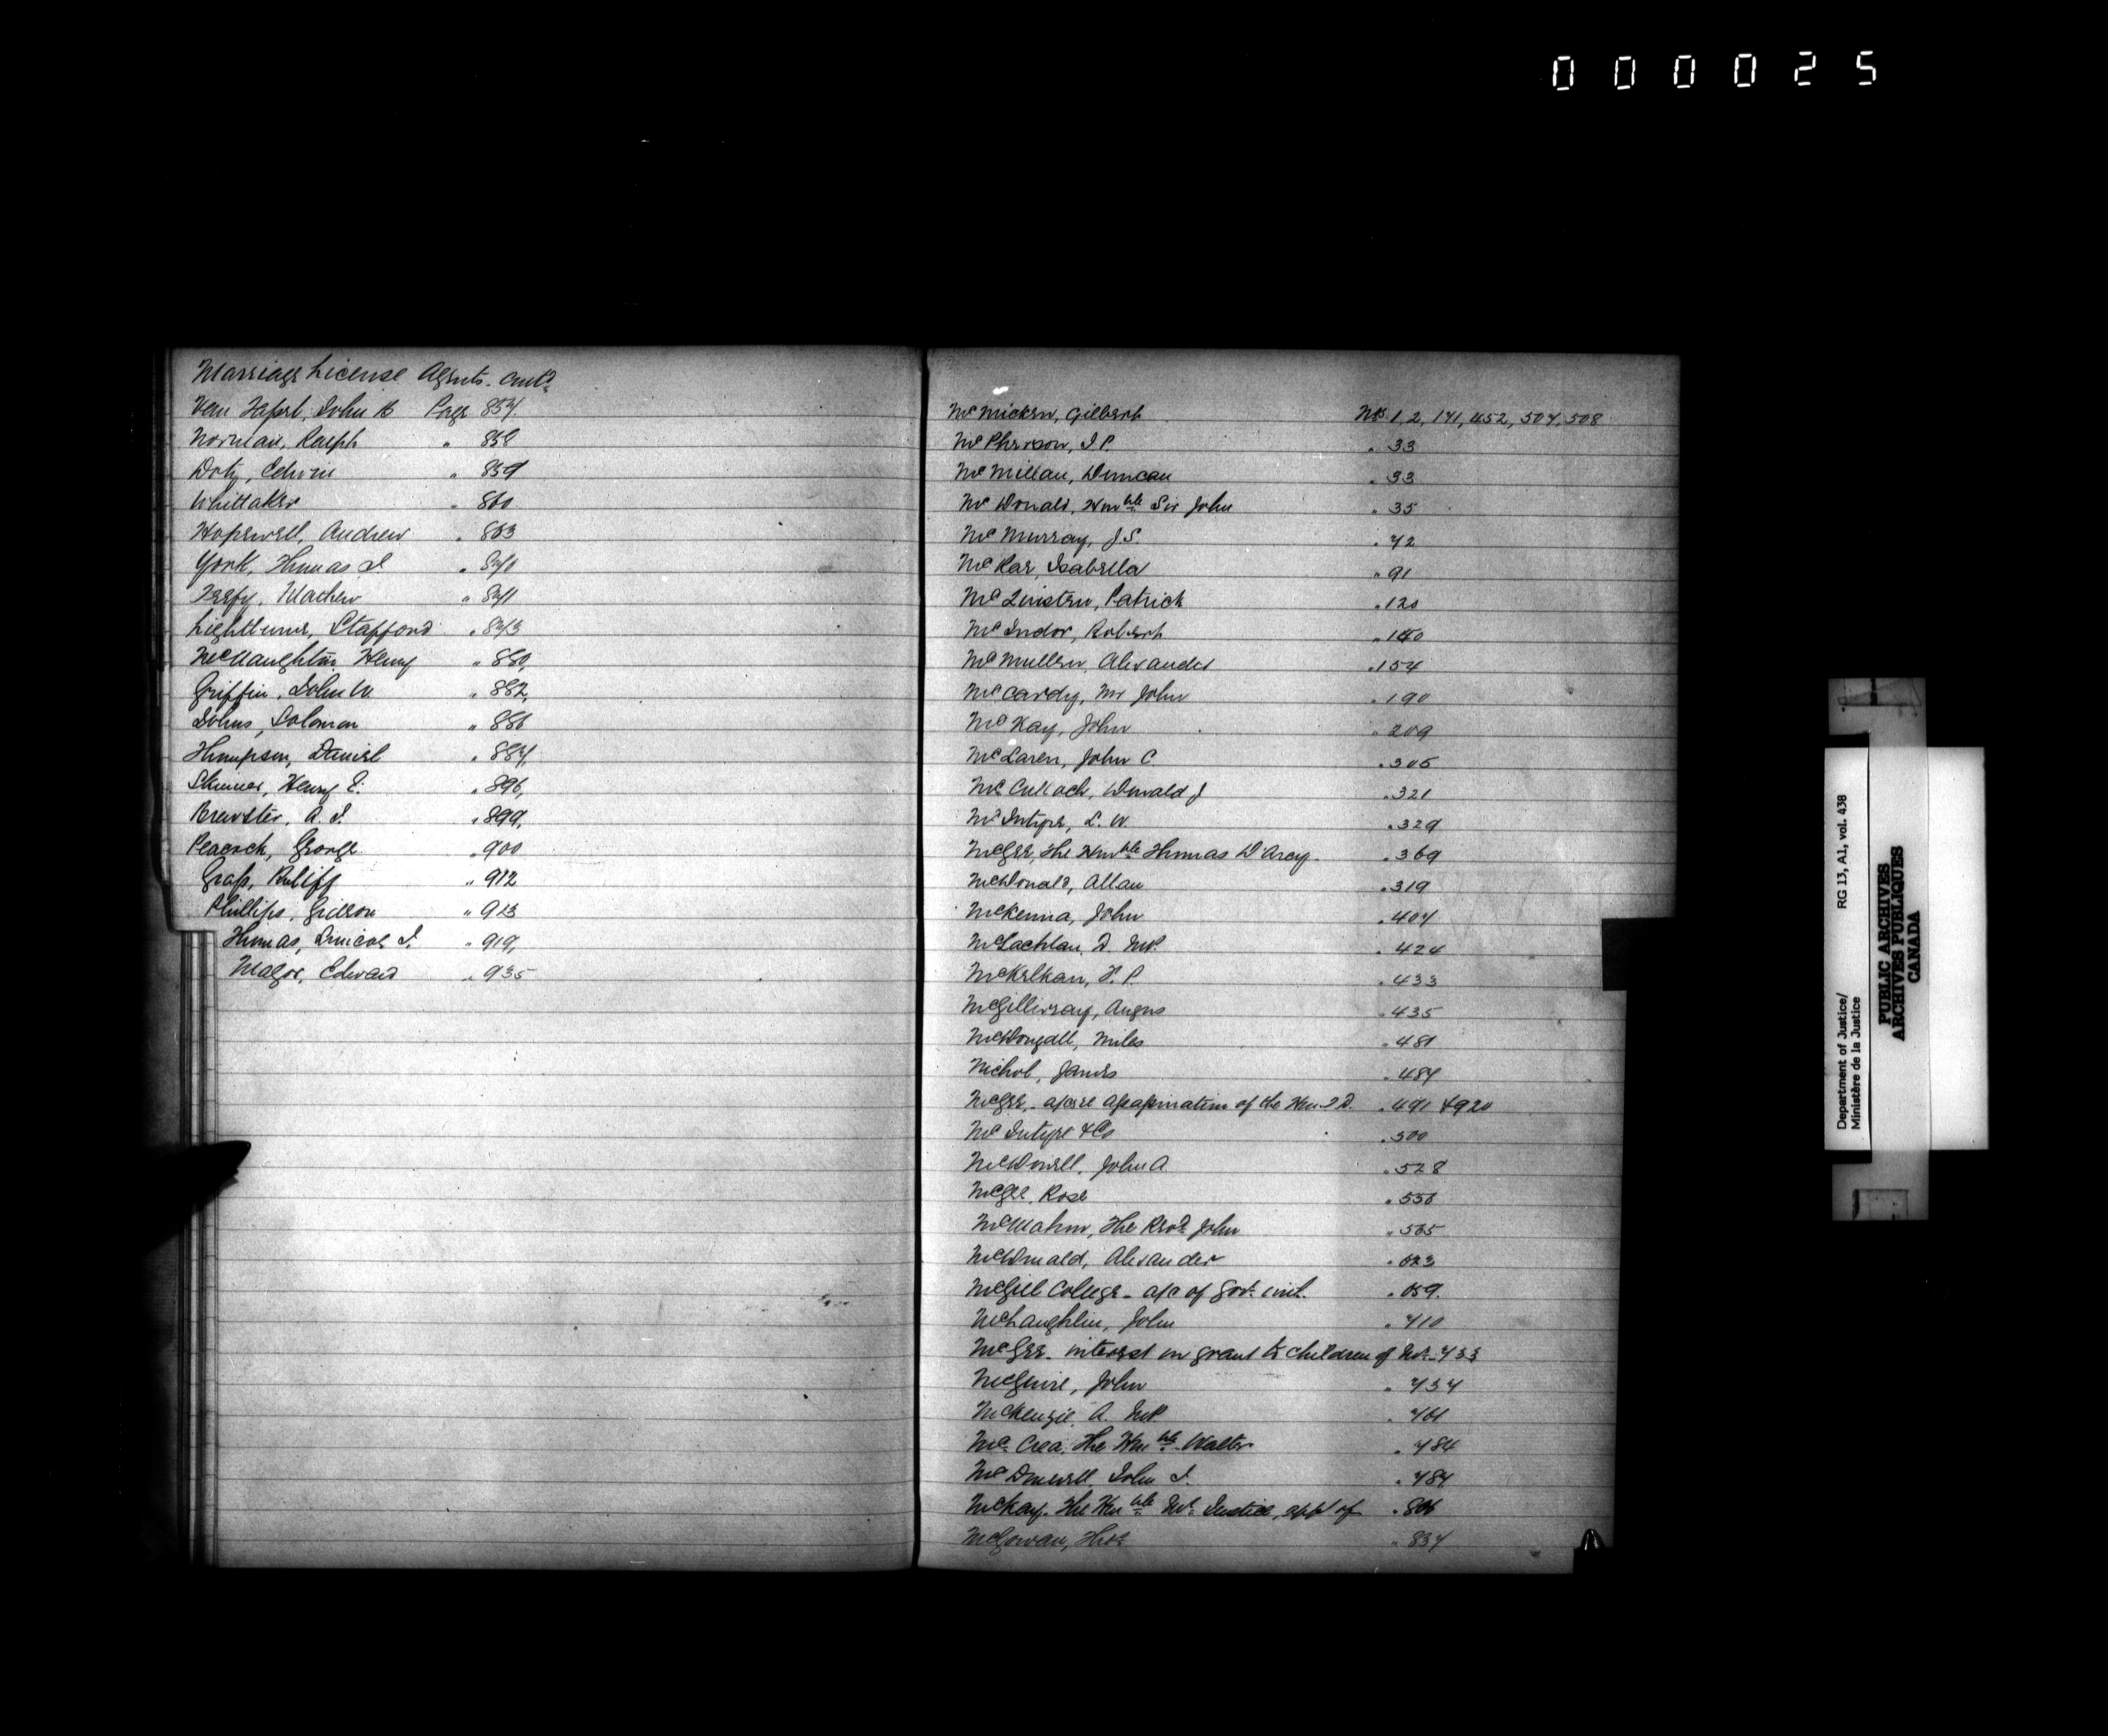 000025
Marriage License Agents. Contd
Van Tassel, John B Page 857.
Norman, Ralph " 858
Doty, Edwin " 859
Whittaker " 860
Hopewell, Andrew " 863
York, Thomas J. " 870
Terfy, Mathew " 871
Lightburne, Stafford " 873
McNaughton, Henry " 880,
Griffin, John W. " 882,
Johns, Solomon " 886
Thompson, Daniel " 887,
Skinner, Henry E. " 896,
Brewster, A. J. " 899,
Peacock, George " 900
Grass, Ruliff " 912
Phillips, Gideon " 913
Thomas, J. " 919,
Magor, Edward " 935
McMicken, Gilbert Nos 1, 2, 171, 452, 507, 508
McPherson, J. P. " 33
McMillan, Duncan " 33
McDonald, Honble Sir John " 35
McMurray, J. S. " 72
McRae, Isabella " 91
McLinster, Patrick " 120
McIndoe, Robert " 140
McMullen, Alexander " 154
McCardy, Mr John " 190
McKay, John " 209
McLaren, John C. " 305
McCulloch, Donald J " 321
McIntyre, L. W. " 329
McGee, The Honble Thomas D'Arcy " 369
McDonald, Allan " 319
McKenna, John " 407
McLachlan, D. M.P. " 424
McKelkan, F. P. " 433
McGillivray, Angus " 435
McDougall, Miles " 481
Nichol, James " 487
McGee, - a/c re Assassination of the Hon T D. " 491 & 920
McIntyre & Co " 500
McDowell, John A. " 528
McGee, Rose " 556
McMahon, The Revd John " 565
McDonald, Alexander " 623
McGill College - a/c of Govt. " 659.
McLaughlin, John " 710
McGee - interest on grant to children of Mr. - 733
McGuire, John " 737
McKenzie, A. M.P. " 761
McCrea, The Honble Walter " 784
McDowell, John J. " 787
McKay, The Honble Mr. Justice, appt of " 806
McGowan, Thos " 837
Department of Justice/ RG 13, A1, vol. 438
Ministère de la Justice
PUBLIC ARCHIVES
ARCHIVES PUBLIQUES
CANADA